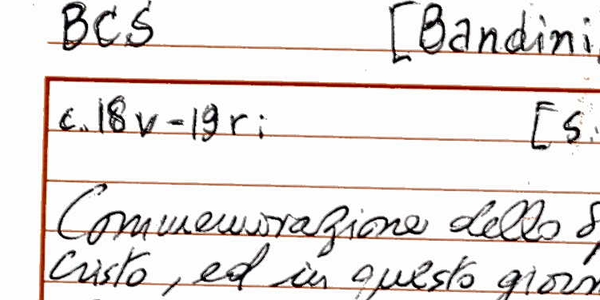 BCS [Bandini
c. 18v-19r: [S.
Commemorazione dello
Cristo, ed in questo giorn